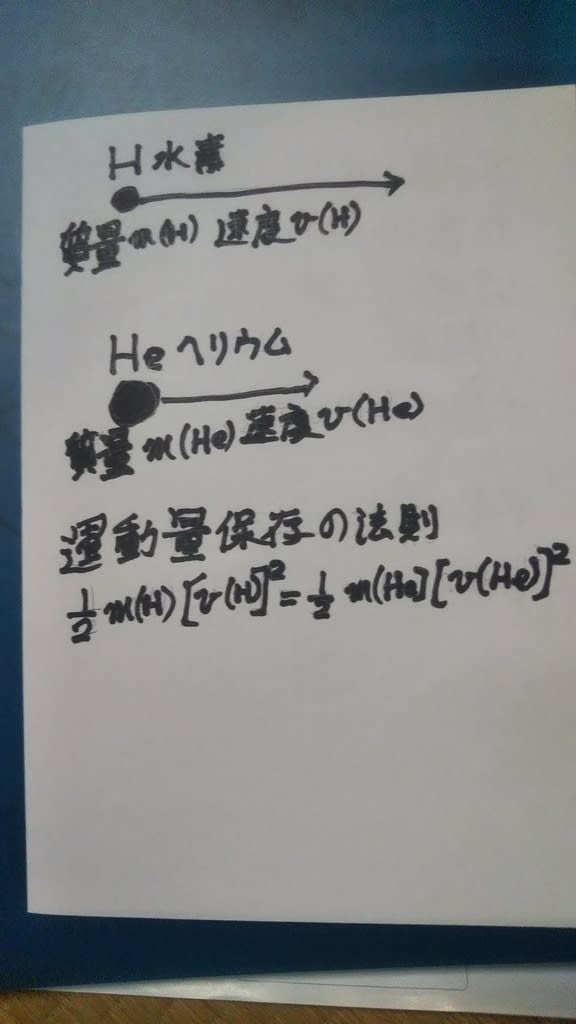 H 水素
質量m(H) 速度v(H)
He ヘリウム
質量m(He)速度v(He)
運動量保存の法則
1/2 m(H)[v(H)]²=1/2 m(He][v(He)]²